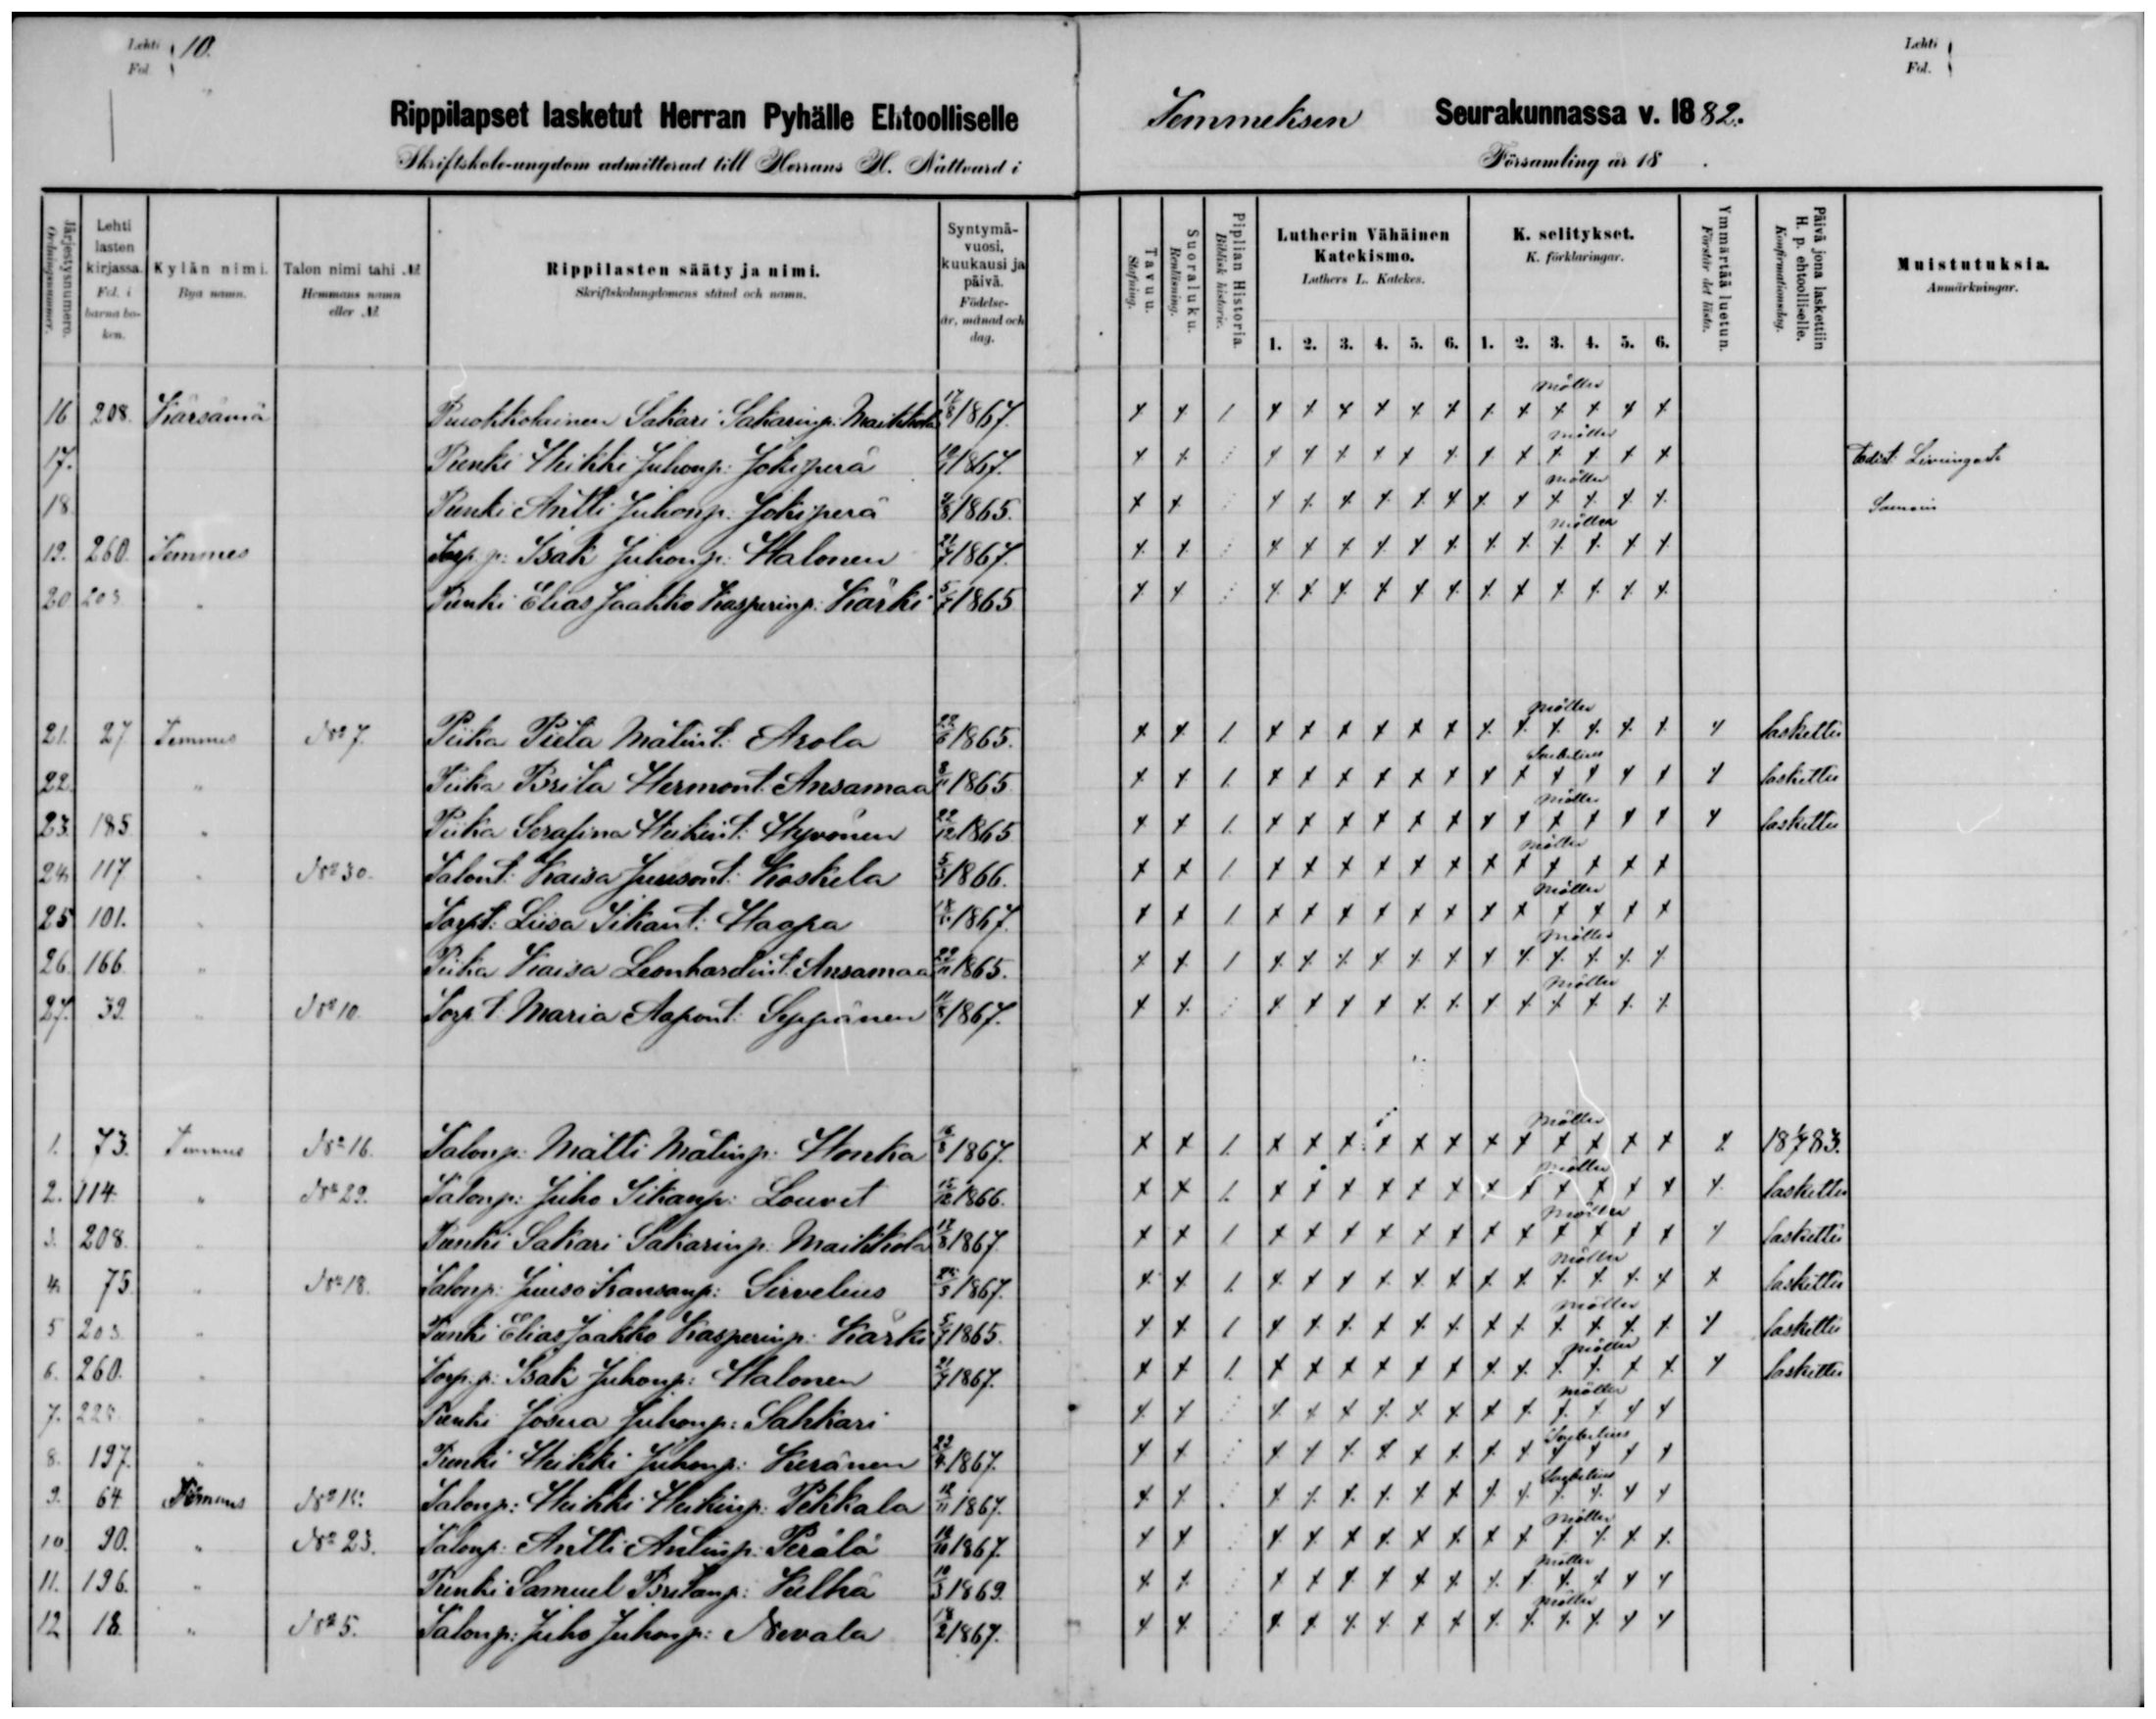 Lehti 10.
Fol
Lehti
Fol.
Rippilapset lasketut Herran Pyhälle Ehtoolliselle Temmeksen Seurakunnassa v. 1882.
Skriftskole-ungdom admitterad till Herrans H. Nattvard i Församling år 18 .
Järjestysnumero. Ordningsnummer.
Lehti lasten kirjassa. Fol. i barna boken.
Kylän nimi. Bya namn.
Talon nimi tahi № Hemmans namn eller №
Rippilasten sääty ja nimi. Skriftskolungdomens stånd och namn.
Syntymä-vuosi, kuukausi ja päivä. Födelse-år, månad och dag.
Tavuu. Stafning.
Suoraluku. Renläsning.
Piplian Historia. Biblisk historie.
Lutherin Vähäinen Katekismo. Luthers L. Katekes.
K. selitykset. K. förklaringar.
Ymmärtää luetun. Förstår det lästa.
Päivä jona laskettiin H. p. ehtoolliselle. Konfirmationsdag.
Muistutuksia. Anmärkningar.
1. 2. 3. 4. 5. 6. 1. 2. 3. 4. 5. 6.
Möller
16 208. Kärsämä Sakari Sakarinp. Maikkola 17/8 1867. x x / x x x x x x x x x x x x
Möller
17. Renki Heikki Juhonp: Jokiperä 1867. x x x x x x x x x x x x x x
Möller
18. Renki Antti Juhonp. Jokiperä 1865. x x x x x x x x x x x x x x
Möller
19. 260. Temmes Torp. p: Isak Juhonp: Halonen 21/7 1867. x x x x x x x x x x x x x x
20 203 " Renki Elias Jaakko Kasperinp: Kärki 5/7 1865 x x x x x x x x x x x x x x
Möller
21. 27 Temmes N° 7. Piika Pieta Matint: Arola 1865. x x / x x x x x x x x x x x x x laskettu
22. " Piika Brita Hermont. Ansamaa 1865. x x / x x x x x x x x x x x x x laskettu
Möller
23. 185. " Piika Serafina Heikint: Hyvönen 22/12 1865 x x / x x x x x x x x x x x x x laskettu
Möller
24. 117. " N° 30. Talont: Kaisa Juusont: Koskela 5/3 1866. x x / x x x x x x x x x x x x
Möller
25 101. " Torpt: Liisa Iikant: Haapa 1867. x x / x x x x x x x x x x x x
Möller
26. 166. " Piika Kaisa Leonhardint. Ansamaa 22/11 1865. x x / x x x x x x x x x x x x
Möller
27. 39. " N° 10. Torp. t: Maria Aapont: Seppänen 11/8 1867. x x x x x x x x x x x x x x
Möller
1. 73. Temmes N° 16. Talonp: Matti Matinp: Honka 1867. x x / x x x x x x x x x x x x x 18 1/7 83.
Möller
2. 114. " N° 29. Talonp: Juho Iikanp: Louvet 15/12 1866. x x / x x x x x x x x x x x x x laskettu
Möller
3. 208. " Renki Sakari Sakarinp. Maikkola 17/8 1867. x x / x x x x x x x x x x x x x laskettu
Möller
4. 75 " N° 18. Talonp: Juuso Fransanp: Sirvelius 1867. x x / x x x x x x x x x x x x x laskettu
Möller
5 203. " Renki Elias Jaakko Kasperinp: Kärki 5/7 1865. x x / x x x x x x x x x x x x x laskettu
Möller
6. 260. " Torp. p: Isak Juhonp: Halonen 21/7 1867. x x / x x x x x x x x x x x x x laskettu
Möller
7. " Renki Josua Juhonp: Sahkari x x x x x x x x x x x x x x
8. 197. " Renki Heikki Juhonp: Keränen 1867. x x x x x x x x x x x x x x
9. 64. Temmes Talonp: Heikki Heikinp: Pekkala 1867. x x x x x x x x x x x x x x
Möller
10. 90. " N° 23. Talonp: Antti Antinp: Perälä 1867. x x x x x x x x x x x x x x
Möller
11. 196. " Renki Samuel Britanp: Kelhä 1869. x x x x x x x x x x x x x x
Möller
12 18. " N° 5. Talonp: Juho Juhonp: Nevala 18/2 1867. x x x x x x x x x x x x x x